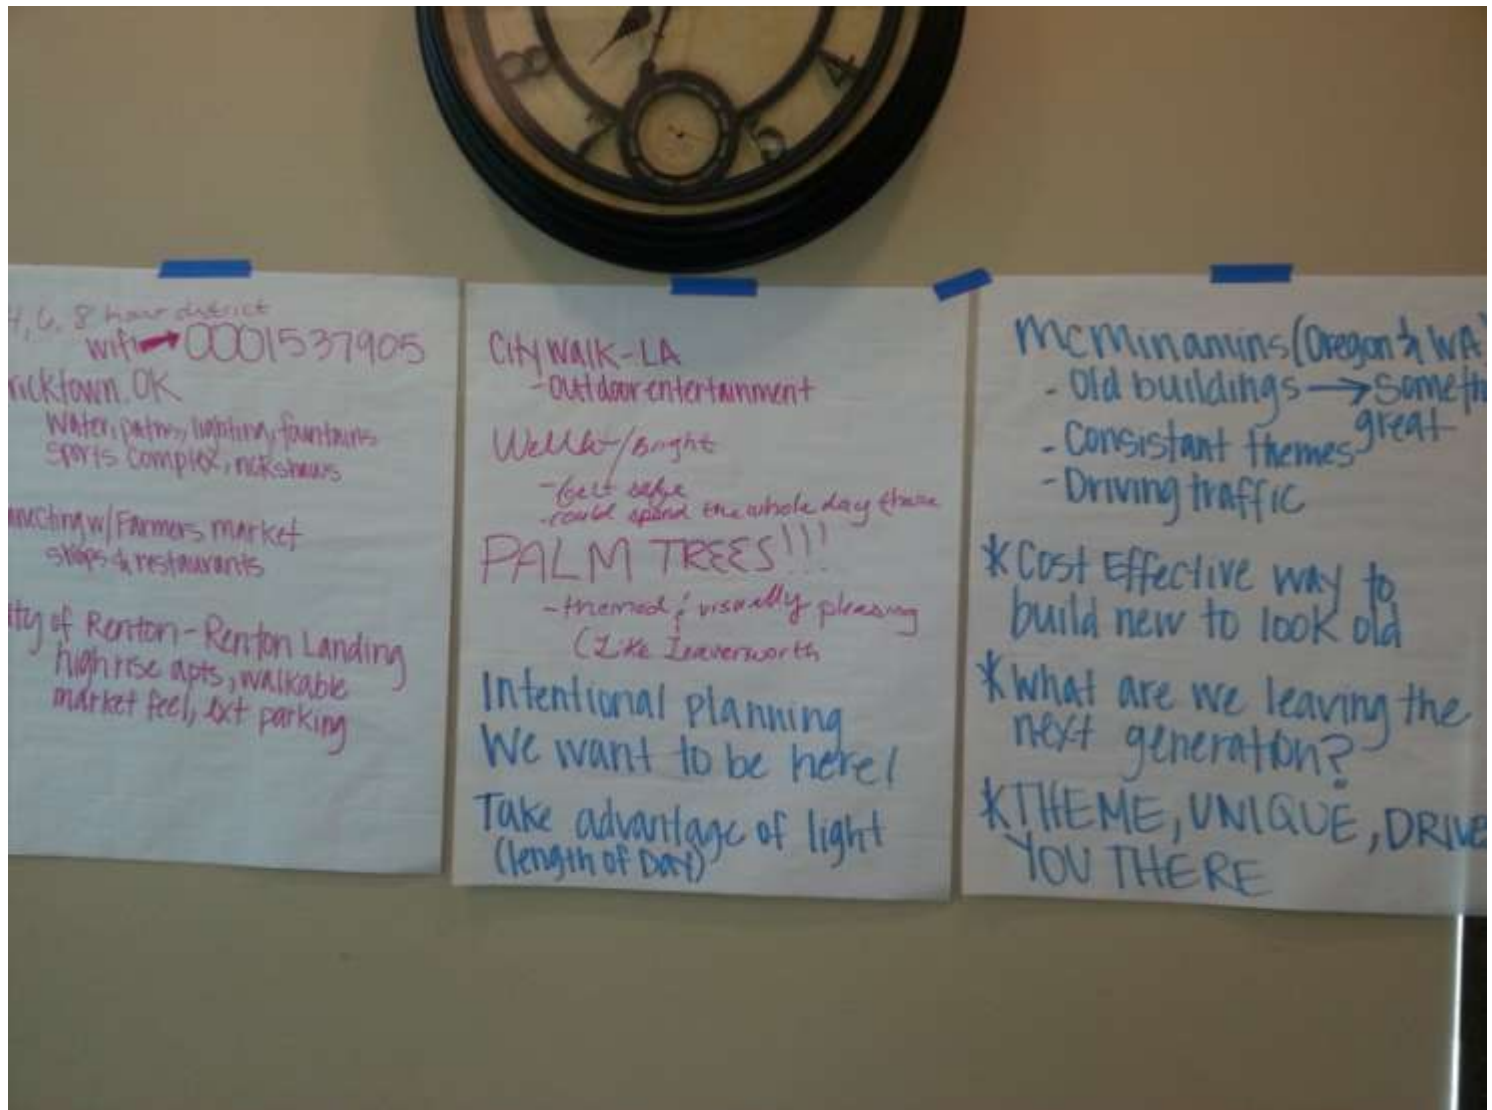 8
4
7
6
4, 6, 8 hour district
wifi → 0001537905
ricktown, OK
water, paths, lighting, fountains
sports complex, rickshaws
necting w/ Farmers market
shops & restaurants
ity of Renton - Renton Landing
highrise apts, walkable
market feel, ext parking
City Walk - LA
- Outdoor entertainment
Well lit / Bright
- felt safe
- could spend the whole day there
PALM TREES!!!
- themed & visually pleasing
(Like Leavenworth
Intentional planning
We want to be here!
Take advantage of light
(length of Day)
McMinamins (Oregon & WA)
- Old buildings → someth
great
- Consistant themes
- Driving traffic
* Cost Effective way to
build new to look old
* What are we leaving the
next generation?
* THEME, UNIQUE, DRIVES
YOU THERE